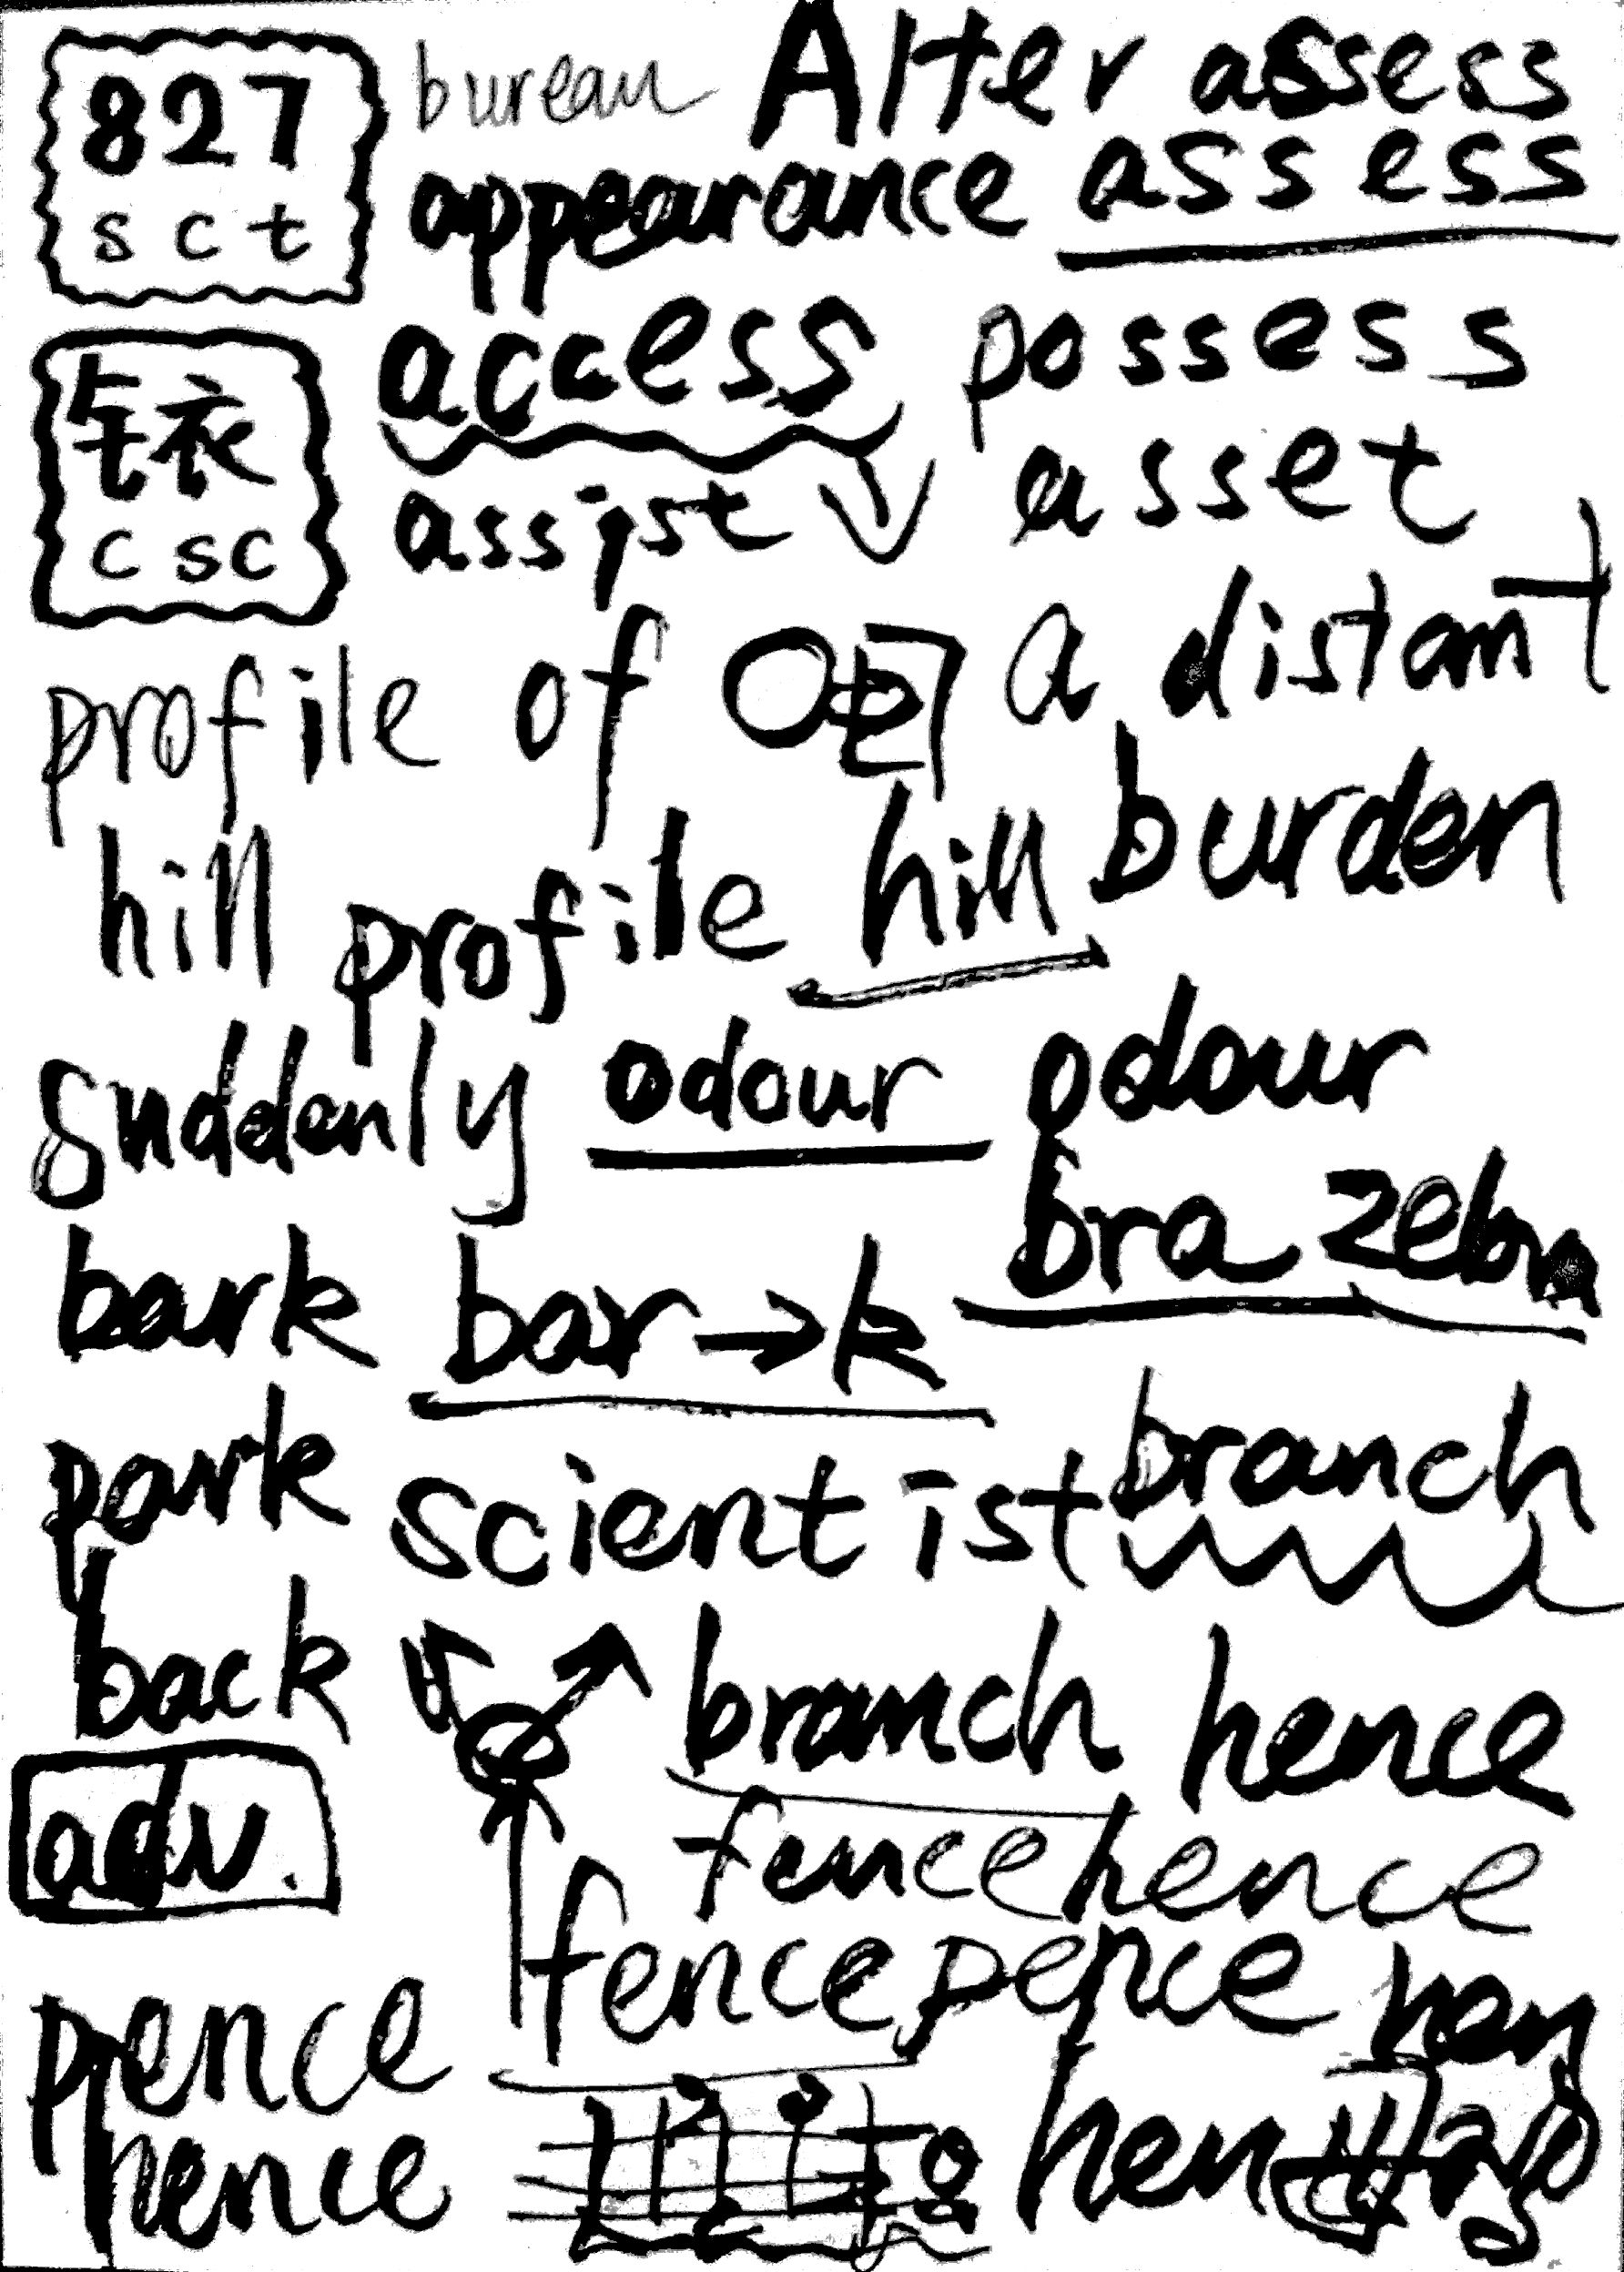 827 bureau Alter assess
s c t appearance assess
access possess
csc assist asset
profile of a distant
hill profile hill burden
suddenly odour odour
bra zebra
bark bar→k
park scientist branch
back branch hence
adv. fence hence
fence pence
pence
hence hen